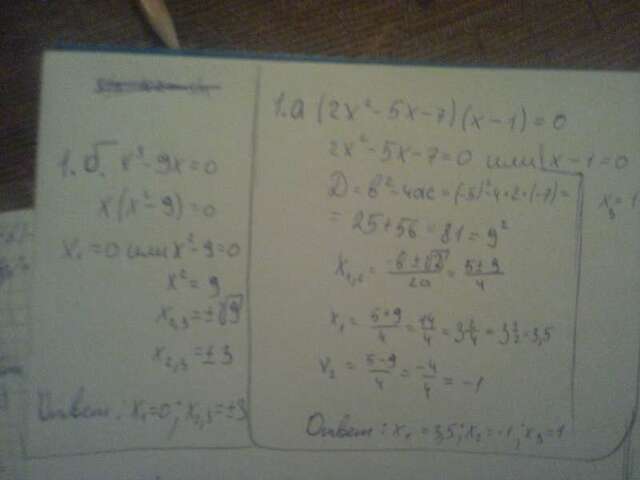 1.б. x³-9x=0
x(x²-9)=0
x₁=0 или x²-9=0
x²=9
x₂,₃=±√9
x₂,₃=±3
Ответ: x₁=0; x₂,₃=±3
1.а (2x²-5x-7)(x-1)=0
2x²-5x-7=0 или x-1=0
x₃=1
D=b²-4ac=(-5)²-4·2·(-7)=
=25+56=81=9²
x₁,₂=(-b±√D)/2a=(5±9)/4
x₁=(5+9)/4=14/4=3 2/4=3 1/2=3,5
x₂=(5-9)/4=-4/4=-1
Ответ: x₁=3,5; x₂=-1; x₃=1